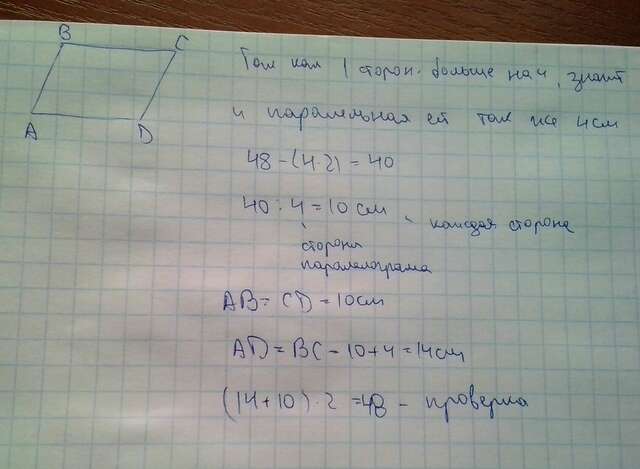 B
C
A
D
Так как 1 сторон. больше на 4, значит
и паралельная ей так же 4см
48-(4·2) = 40
40 : 4 = 10 см - каждая сторона
стороны
паралелограма
AB = CD = 10см
AD = BC - 10+4 = 14см
(14+10)·2 = 48 - проверка